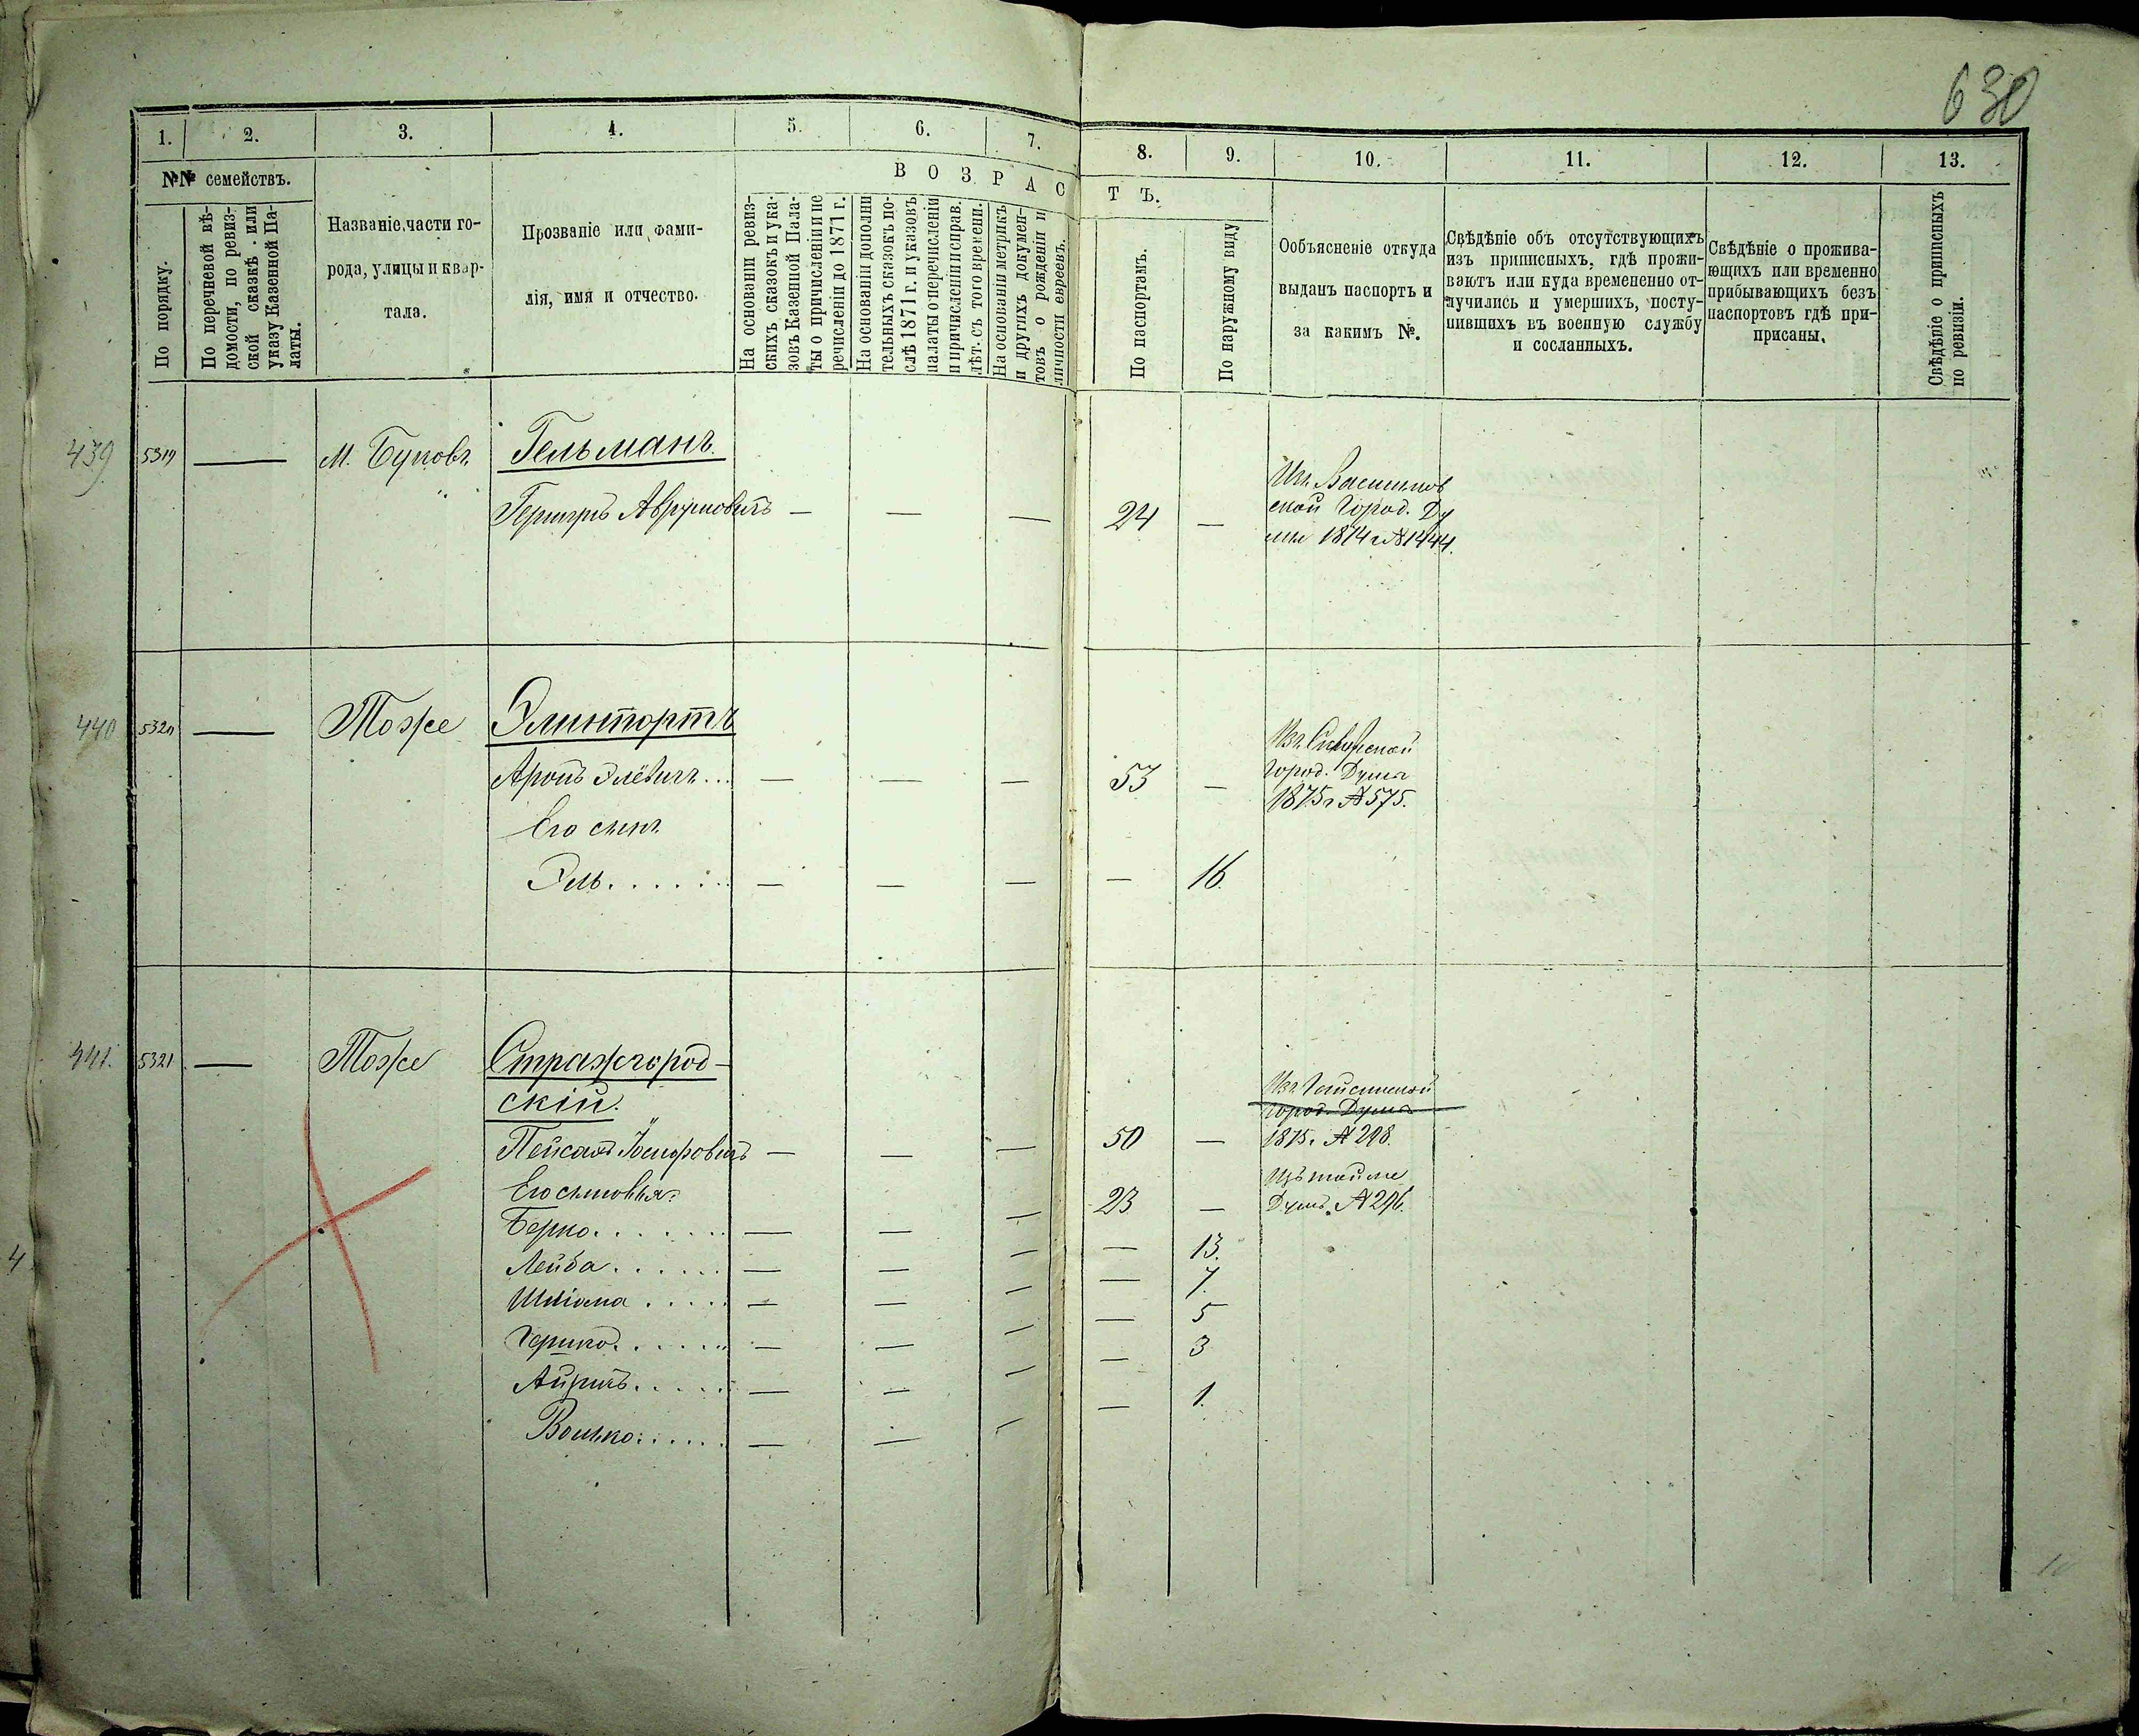 630
1.
2.
3.
4.
5.
6.
7.
8.
9.
10.
11.
12.
13.
№№ семействъ.
По порядку.
По перечневой вѣ-
домости, по ревиз-
ской сказкѣ или
указу Казенной Па-
латы.
Названіе части го-
рода, улицы и квар-
тала.
Прозваніе или фами-
лія, имя и отчество.
ВОЗРАСТЪ.
На основаніи ревиз-
скихъ сказокъ и ука-
зовъ Казенной Пала-
ты о причисленіи и пе
речисленіи до 1871 г.
На основаніи дополни
тельныхъ сказокъ по-
слѣ 1871 г. и указовъ
палаты о перечисленіи
и причисленіи и справ.
лѣт. съ того времени.
На основаніи метрикъ
и другихъ докумен-
товъ о рожденіи и
личности евреевъ.
По паспортамъ.
По наружному виду
Ообъясненіе откуда
выданъ паспортъ и
за какимъ №.
Свѣдѣніе объ отсутствующихъ
изъ приписныхъ, гдѣ прожи-
ваютъ или куда временено от-
лучились и умершихъ, посту-
пившихъ въ военную службу
и сосланныхъ.
Свѣдѣніе о прожива-
ющихъ или временно
прибывающихъ безъ
паспортовъ гдѣ при-
присаны.
Свѣдѣніе о приписныхъ
по ревизіи.
439 5319 — М. Буковъ Гельманъ
Аврумовичъ — — — 24 —
Город. Ду
мы 1874 г № 1444.
440 5320 — Тоже Элинтортъ
Аронъ Элевичъ... — — — 53 —
Город. Думы
1875 г № 575.
Его сынъ
Эль...... — — — — 16.
441. 5321 — Тоже Стражгород-
скій.
Город. Думы
Пейсахъ Іосифовичъ — — — 50 — 1875 г № 298.
Его сыновья: Изъ той же
Берко....... — — — 23 — Думы № 296.
Лейба...... — — — — 13.
— — — — 7.
Гершко...... — — — — 5
— — — — 3
Волько...... — — — — 1.
4